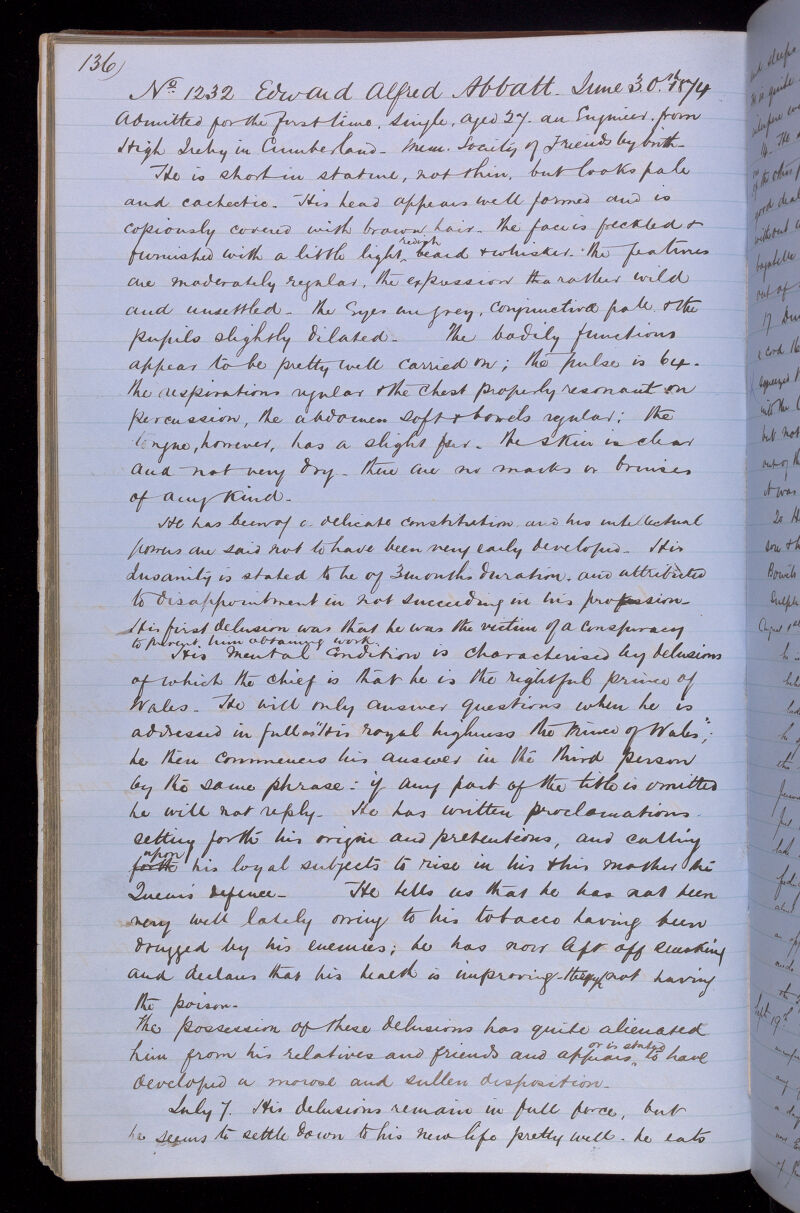 136)
No. 1232 Edward Alfred Abbatt. June 30th 1874
Admitted for the first time, single, aged 27. an Engineer, from
High Ireby in Cumberland - Mem. Society of Friends by birth -
He is short in stature, not thin, but looks pale
and cachectic. His head appears well formed and is
copiously covered with brown hair. The face is freckled &
furnished with a little light, redish beard & whisker. The features
are moderately regular, the expression tho rather wild
and unsettled - The Eyes are grey, conjunctiva pale & the
pupils slightly dilated - The bodily functions
appear to be pretty well carried on; the pulse is 64.
the respirations regular & the chest properly resonant on
percussion, the abdomen soft & bowels regular; the
tongue, however, has a slight fur. The skin is clear
and not very dry - there are no marks or bruises
of any kind -
He has been of a delicate constitution, and his intellectual
powers are said not to have been very early developed - His
Insanity is stated to be of 3 months duration, and attributed
to disappointment in not succeeding in his profession -
His first delusion was that he was the victim of a conspiracy
to prevent him obtaining work
His Mental Condition is characterised by delusions
of which the chief is that he is the rightful prince of
Wales - He will only answer questions when he is
addressed in full as "His royal highness the Prince of Wales";
he then commences his answer in the third person
by the same phrase: if any part of the title is omitted
he will not reply - He has written proclamations
setting forth his origin and pretentions, and calling
forth upon his loyal subjects to rise in his & his mother the
Queen's defence - He tells us that he has not been
very well lately owing to his tobacco having been
drugged by his enemies; he has now left off smoking
and declares that his health is improving not having
the poison -
The possession of these delusions has quite alienated
him from his relatives and friends and appears, or is stated to have
developed a morose and sullen disposition -
July 7. His delusions remain in full force, but
he seems to settle down to his new life pretty well - he eats